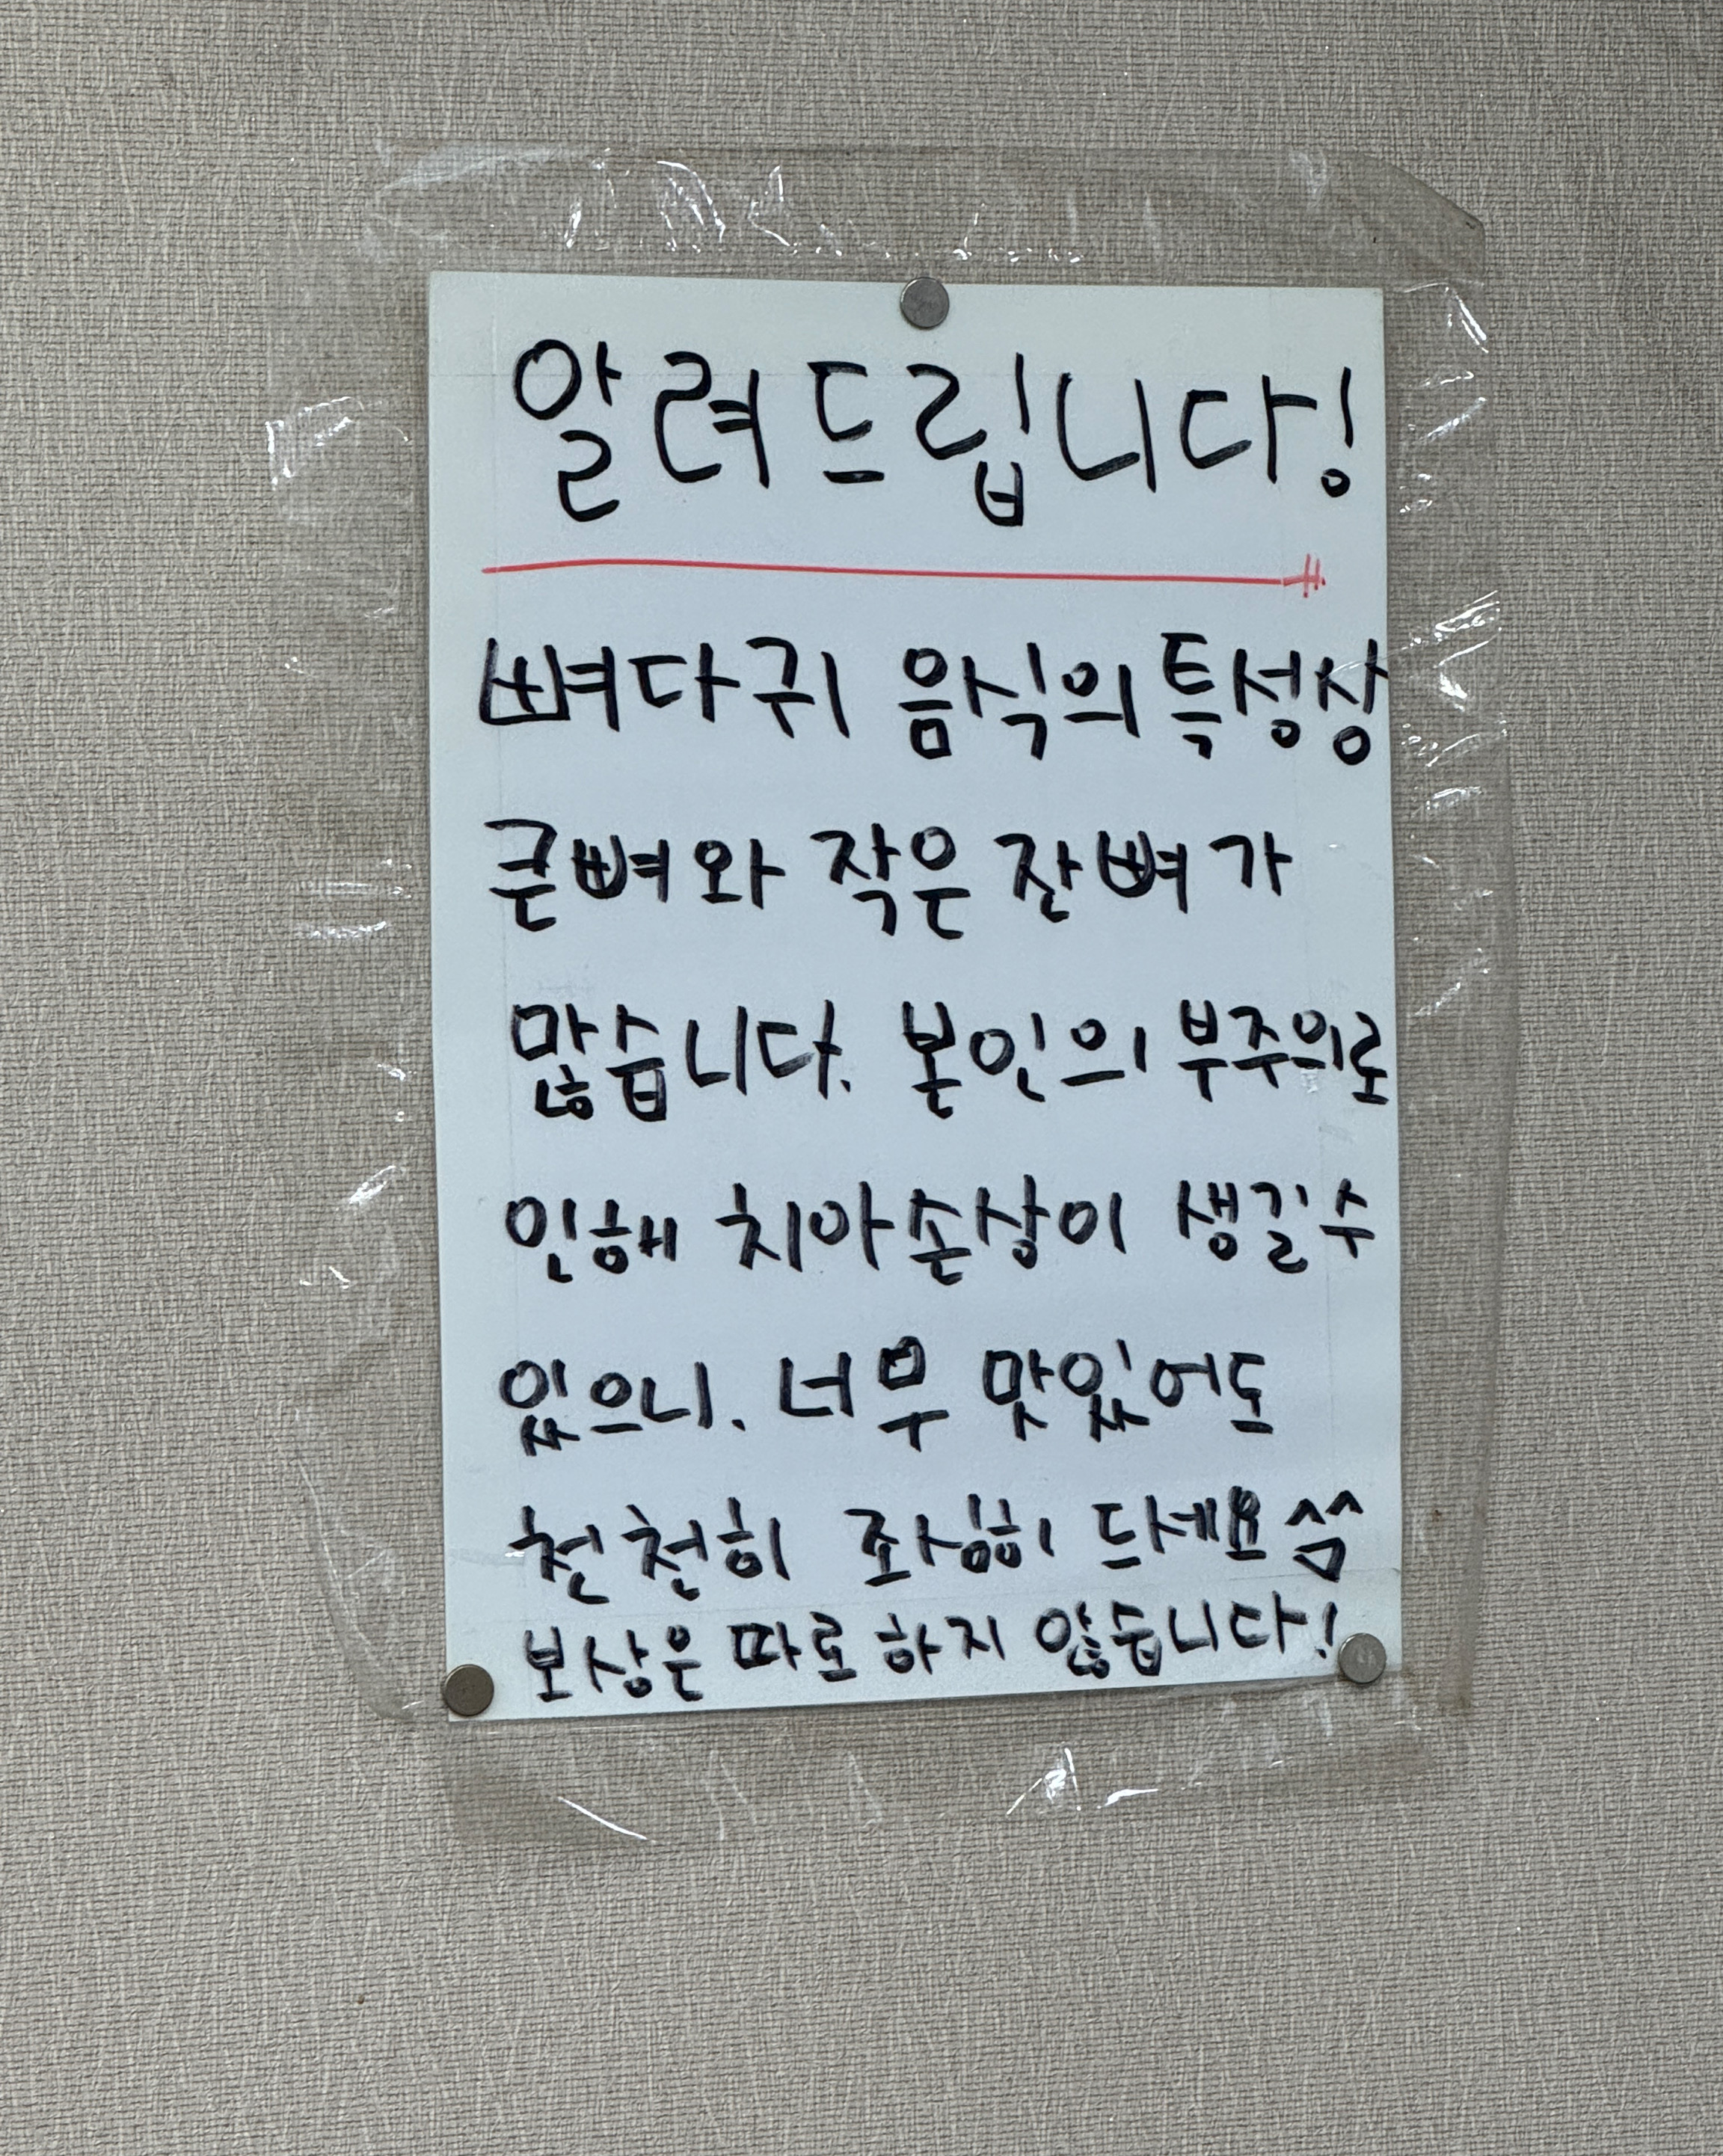 알려드립니다!
뼈다귀 음식의 특성상
큰뼈와 작은 잔뼈가
많습니다. 본인의 부주의로
인해 치아손상이 생길수
있으니. 너무 맛있어도
천천히 조심히 드세요 ^^
보상은 따로 하지 않습니다!